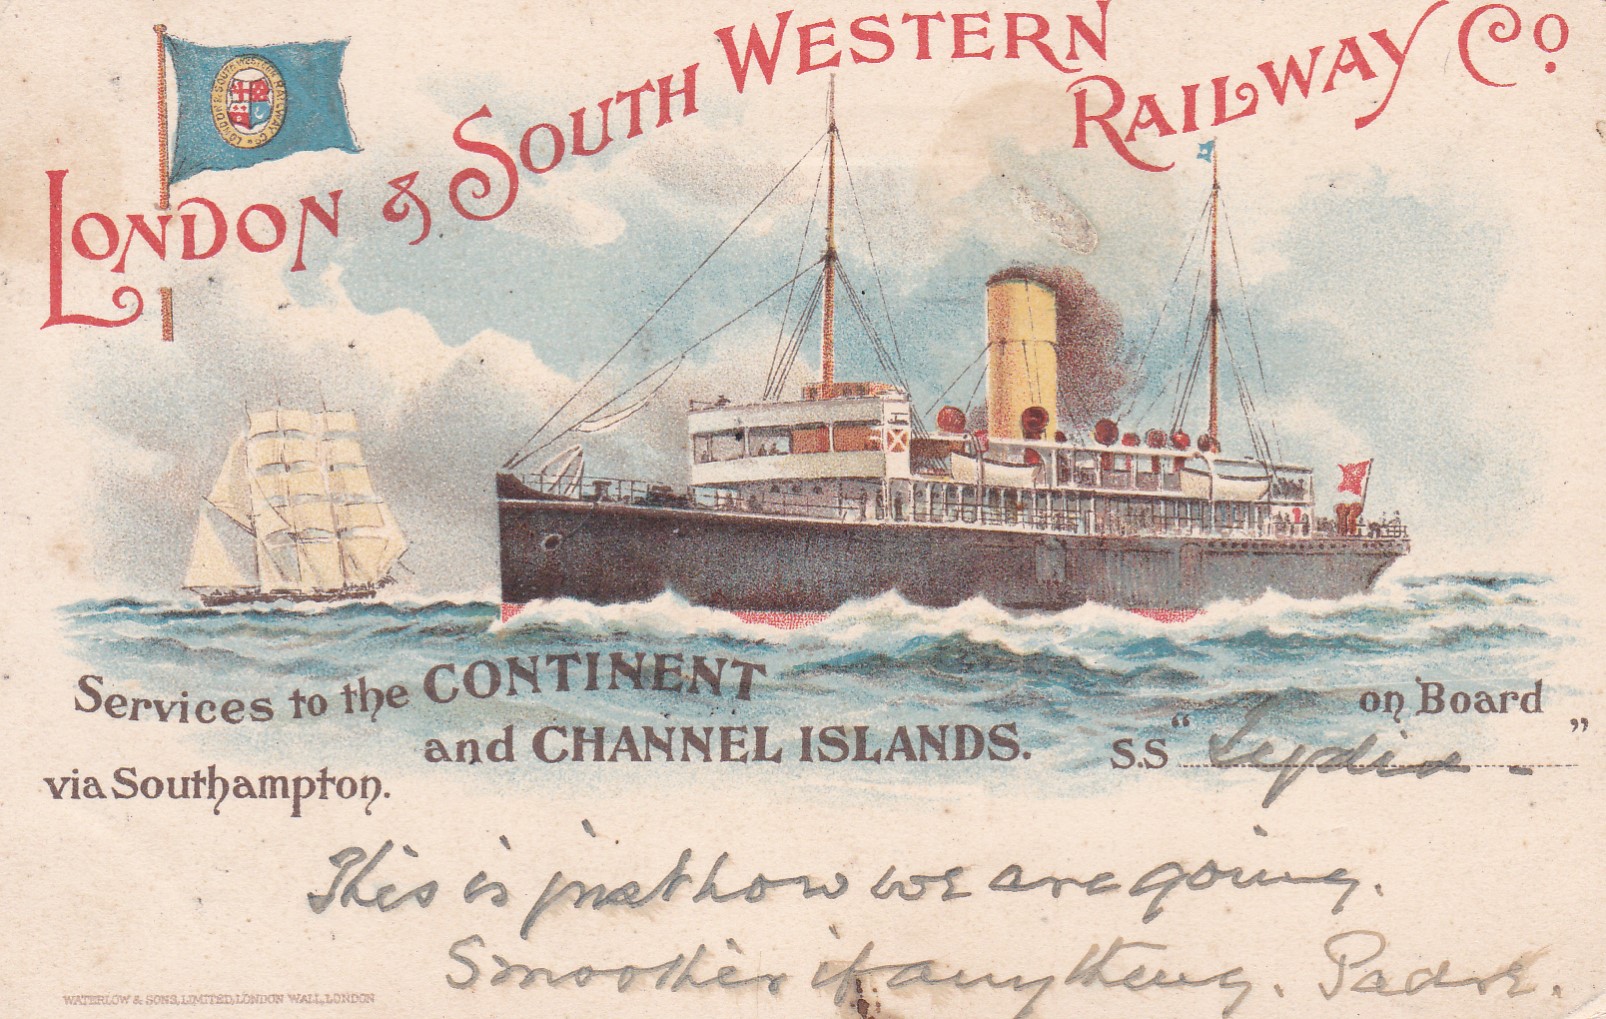 LONDON & SOUTH WESTERN RAILWAY Co
LONDON & SOUTH WESTERN RAILWAY Co
Services to the CONTINENT
and CHANNEL ISLANDS.
via Southampton.
on Board
S.S “Lydia -”
This is just how we are going.
Smoother if anything. Padre.
WATERLOW & SONS, LIMITED, LONDON WALL, LONDON